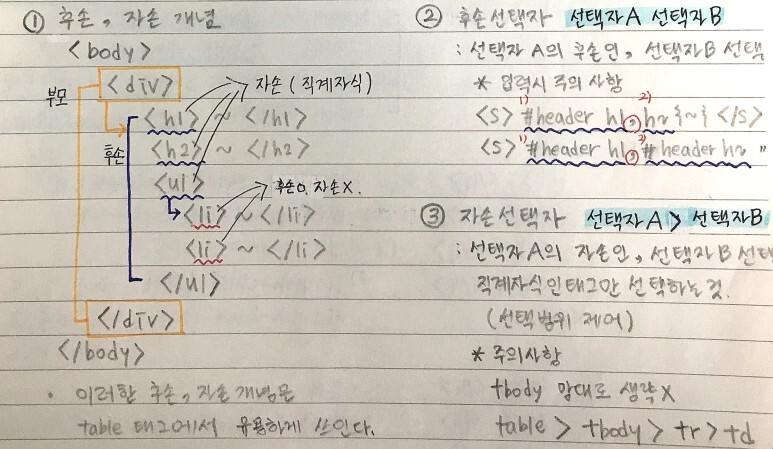 ① 후손, 자손 개념
<body>
부모 <div>
자손 (직계자식)
<h1> ~ </h1>
후손
<h2> ~ </h2>
<ul>
후손O. 자손X.
<li> ~ </li>
<li> ~ </li>
</ul>
</div>
</body>
· 이러한 후손, 자손개념은
table 태그에서 유용하게 쓰인다.
② 후손선택자 선택자A 선택자B
: 선택자A의 후손인, 선택자B 선택
* 입력시 주의 사항
1) 2)
<S> #header h1, h2 {~} </S>
1) 2)
<S> #header h1, #header h2 "
③ 자손선택자 선택자A > 선택자B
: 선택자A의 자손인, 선택자B 선택
직계자식인태그만 선택하는것.
(선택범위 제어)
* 주의사항
tbody 맘대로 생략X
table > tbody > tr > td